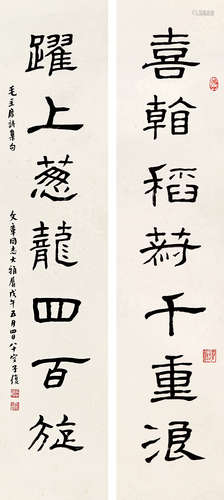 喜看稻菽千重浪
躍上葱龍四百旋
毛主席詩集句
文章同志大雅屬戊午五月四日